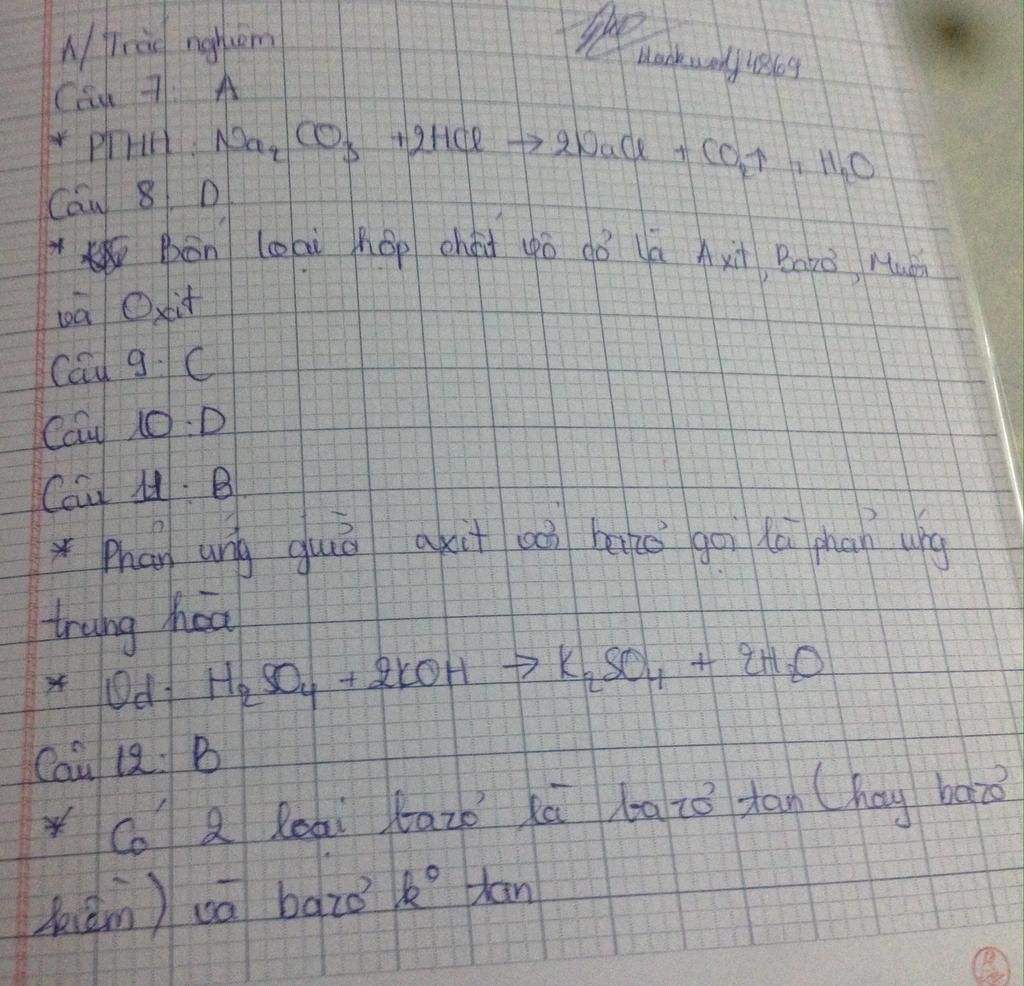 A/ Trắc nghiệm
Hackwolf4869
Câu 7: A
* PTHH: Na₂CO₃ + 2HCl → 2NaCl + CO₂↑ + H₂O
Câu 8: D
* Bốn loại hợp chất vô cơ là Axit, Bazơ, Muối
và Oxit
Câu 9: C
Câu 10: D
Câu 11: B
* Phản ứng giữa axit với bazơ gọi là phản ứng
trung hòa
* Vd: H₂SO₄ + 2KOH → K₂SO₄ + 2H₂O
Câu 12: B
* Có 2 loại bazơ là bazơ tan (hay bazơ
kiềm) và bazơ k° tan